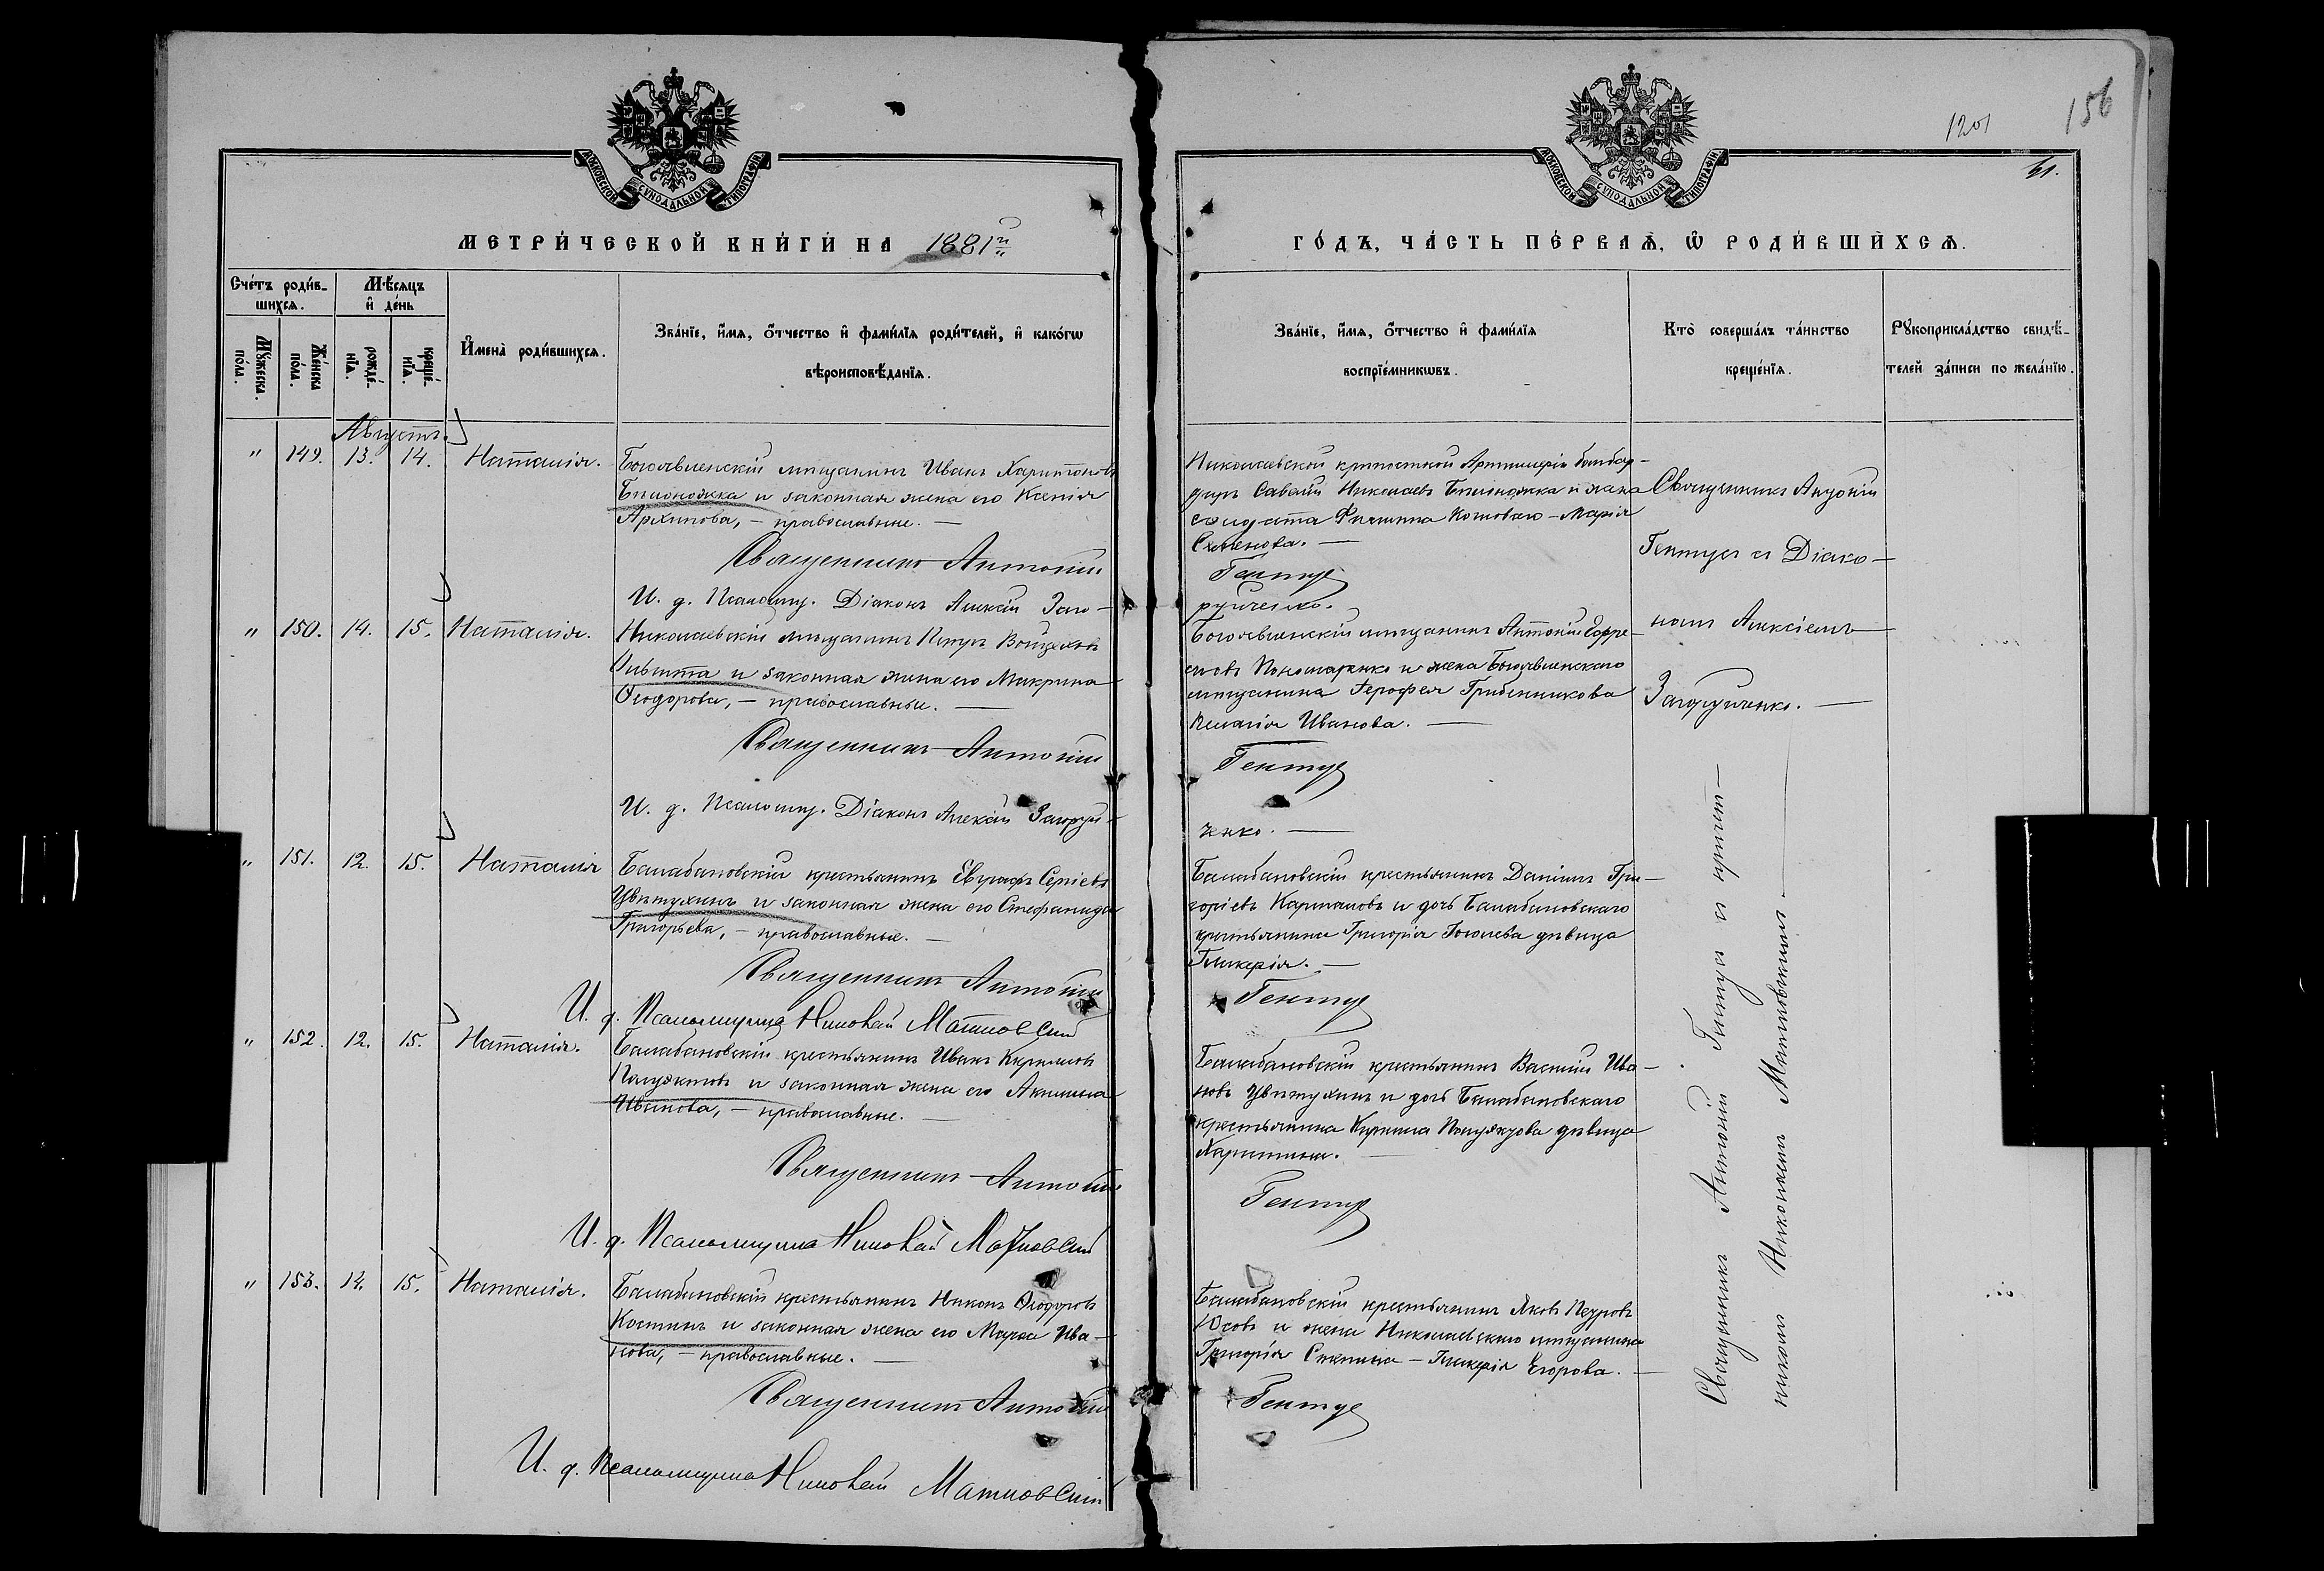 МОСКОВСКОЙ СѴНОДАЛЬНОЙ ТИПОГРАФІИ.
МЕТРИ́ЧЕСКОЙ КНИ́ГИ НА 1881й
Сче́тъ роди́в-
шихся.
Мѣ́сяцъ
и҆ де́нь
Мꙋ́жеска
по́ла.
Же́нска
по́ла.
рожде́-
нїѧ.
креще́-
нїѧ.
И҆мена̀ роди́вшихсѧ.
Зва́нїе, и҆́мѧ, ѻ҆́тчество и҆ фами́лїѧ роди́телей, и҆ како́гѡ
вѣроисповѣ́данїѧ.
Августъ.
" 149. 13. 14. Наталія.
Богоявленскій мѣщанинъ Иванъ Харитоновъ
Бѣлоножка и законная жена его Ксенія
Архипова, – православные. –
Священникъ Антоній
И. д. Псаломщ. Діаконъ Алексій Заго-
" 150. 14. 15. Наталія.
Николаевскій мѣщанинъ Петръ
и законная жена его Макрина
Ѳеодорова, – православные. –
Священникъ Антоній
И. д. Псаломщ. Діаконъ Алексій Загоруй-
" 151. 12. 15. Наталія
Балабановскій крестьянинъ Евграфъ Сергіевъ
Цвѣтухинъ и законная жена его Стефанида
Григорьева, – православные. –
Священникъ Антоній
И. д. Псаломщика Николай Матковскій
" 152. 12. 15. Наталія.
Балабановскій крестьянинъ Иванъ Кирилловъ
Полуяктовъ и законная жена его Акилина
Иванова, – православные. –
Священникъ Антоній
И. д. Псаломщика Николай Матковскій
" 153. 14. 15. Наталія.
Балабановскій крестьянинъ Никонъ Ѳеодоровъ
Костинъ и законная жена его Марѳа Ива-
нова, – православные. –
Священникъ Антоній
И. д. Псаломщика Николай Матковскій
156
1201
61.
МОСКОВСКОЙ СѴНОДАЛЬНОЙ ТИПОГРАФІИ.
ГО́ДЪ, ЧА́СТЬ ПЕ́РВАѦ, Ѡ҆ РОДИ́ВШИХСѦ.
Зва́нїе, и҆́мѧ, ѻ҆́тчество и҆ фами́лїѧ
воспрїе́мникѡвъ.
Кто̀ соверша́лъ та́инство
креще́нїѧ.
Рꙋкоприкла́дство свидѣ́-
телей за́писи по жела́нїю.
Николаевской крѣпостной Артиллеріи бомбар-
диръ Савелій Николаевъ Бѣлоножка и жена
солдата Филиппа Котоваго – Марія
Семенова. –
Гентуе
руйченко.
Богоявленскій мѣщанинъ Антоній Ефре-
мовъ Пономаренко и жена Богоявленскаго
мѣщанина Іерофея Гребенникова
Пелагія Иванова. –
Гентуе
ченко. –
Балабановскій крестьянинъ Даніилъ Гри-
горіевъ Картановъ и дочь Балабановскаго
крестьянина Григорія Гоголева дѣвица
Гликерія. –
Гентуе
Балабановскій крестьянинъ Василій Ива-
новъ Цвѣтухинъ и дочь Балабановскаго
крестьянина Кирилла Полуяктова дѣвица
Харитина. –
Гентуе
Балабановскій крестьянинъ Яковъ Петровъ
Юсовъ и жена Николаевскаго мѣщанина
Григорія – Гликерія Егорова. –
Гентуе
Священникъ Антоній
Гентуе и Діако-
номъ Алексіемъ
Загоруйченко. –
Священникъ Антоній Гентуе и
Николаемъ Матковскимъ. –